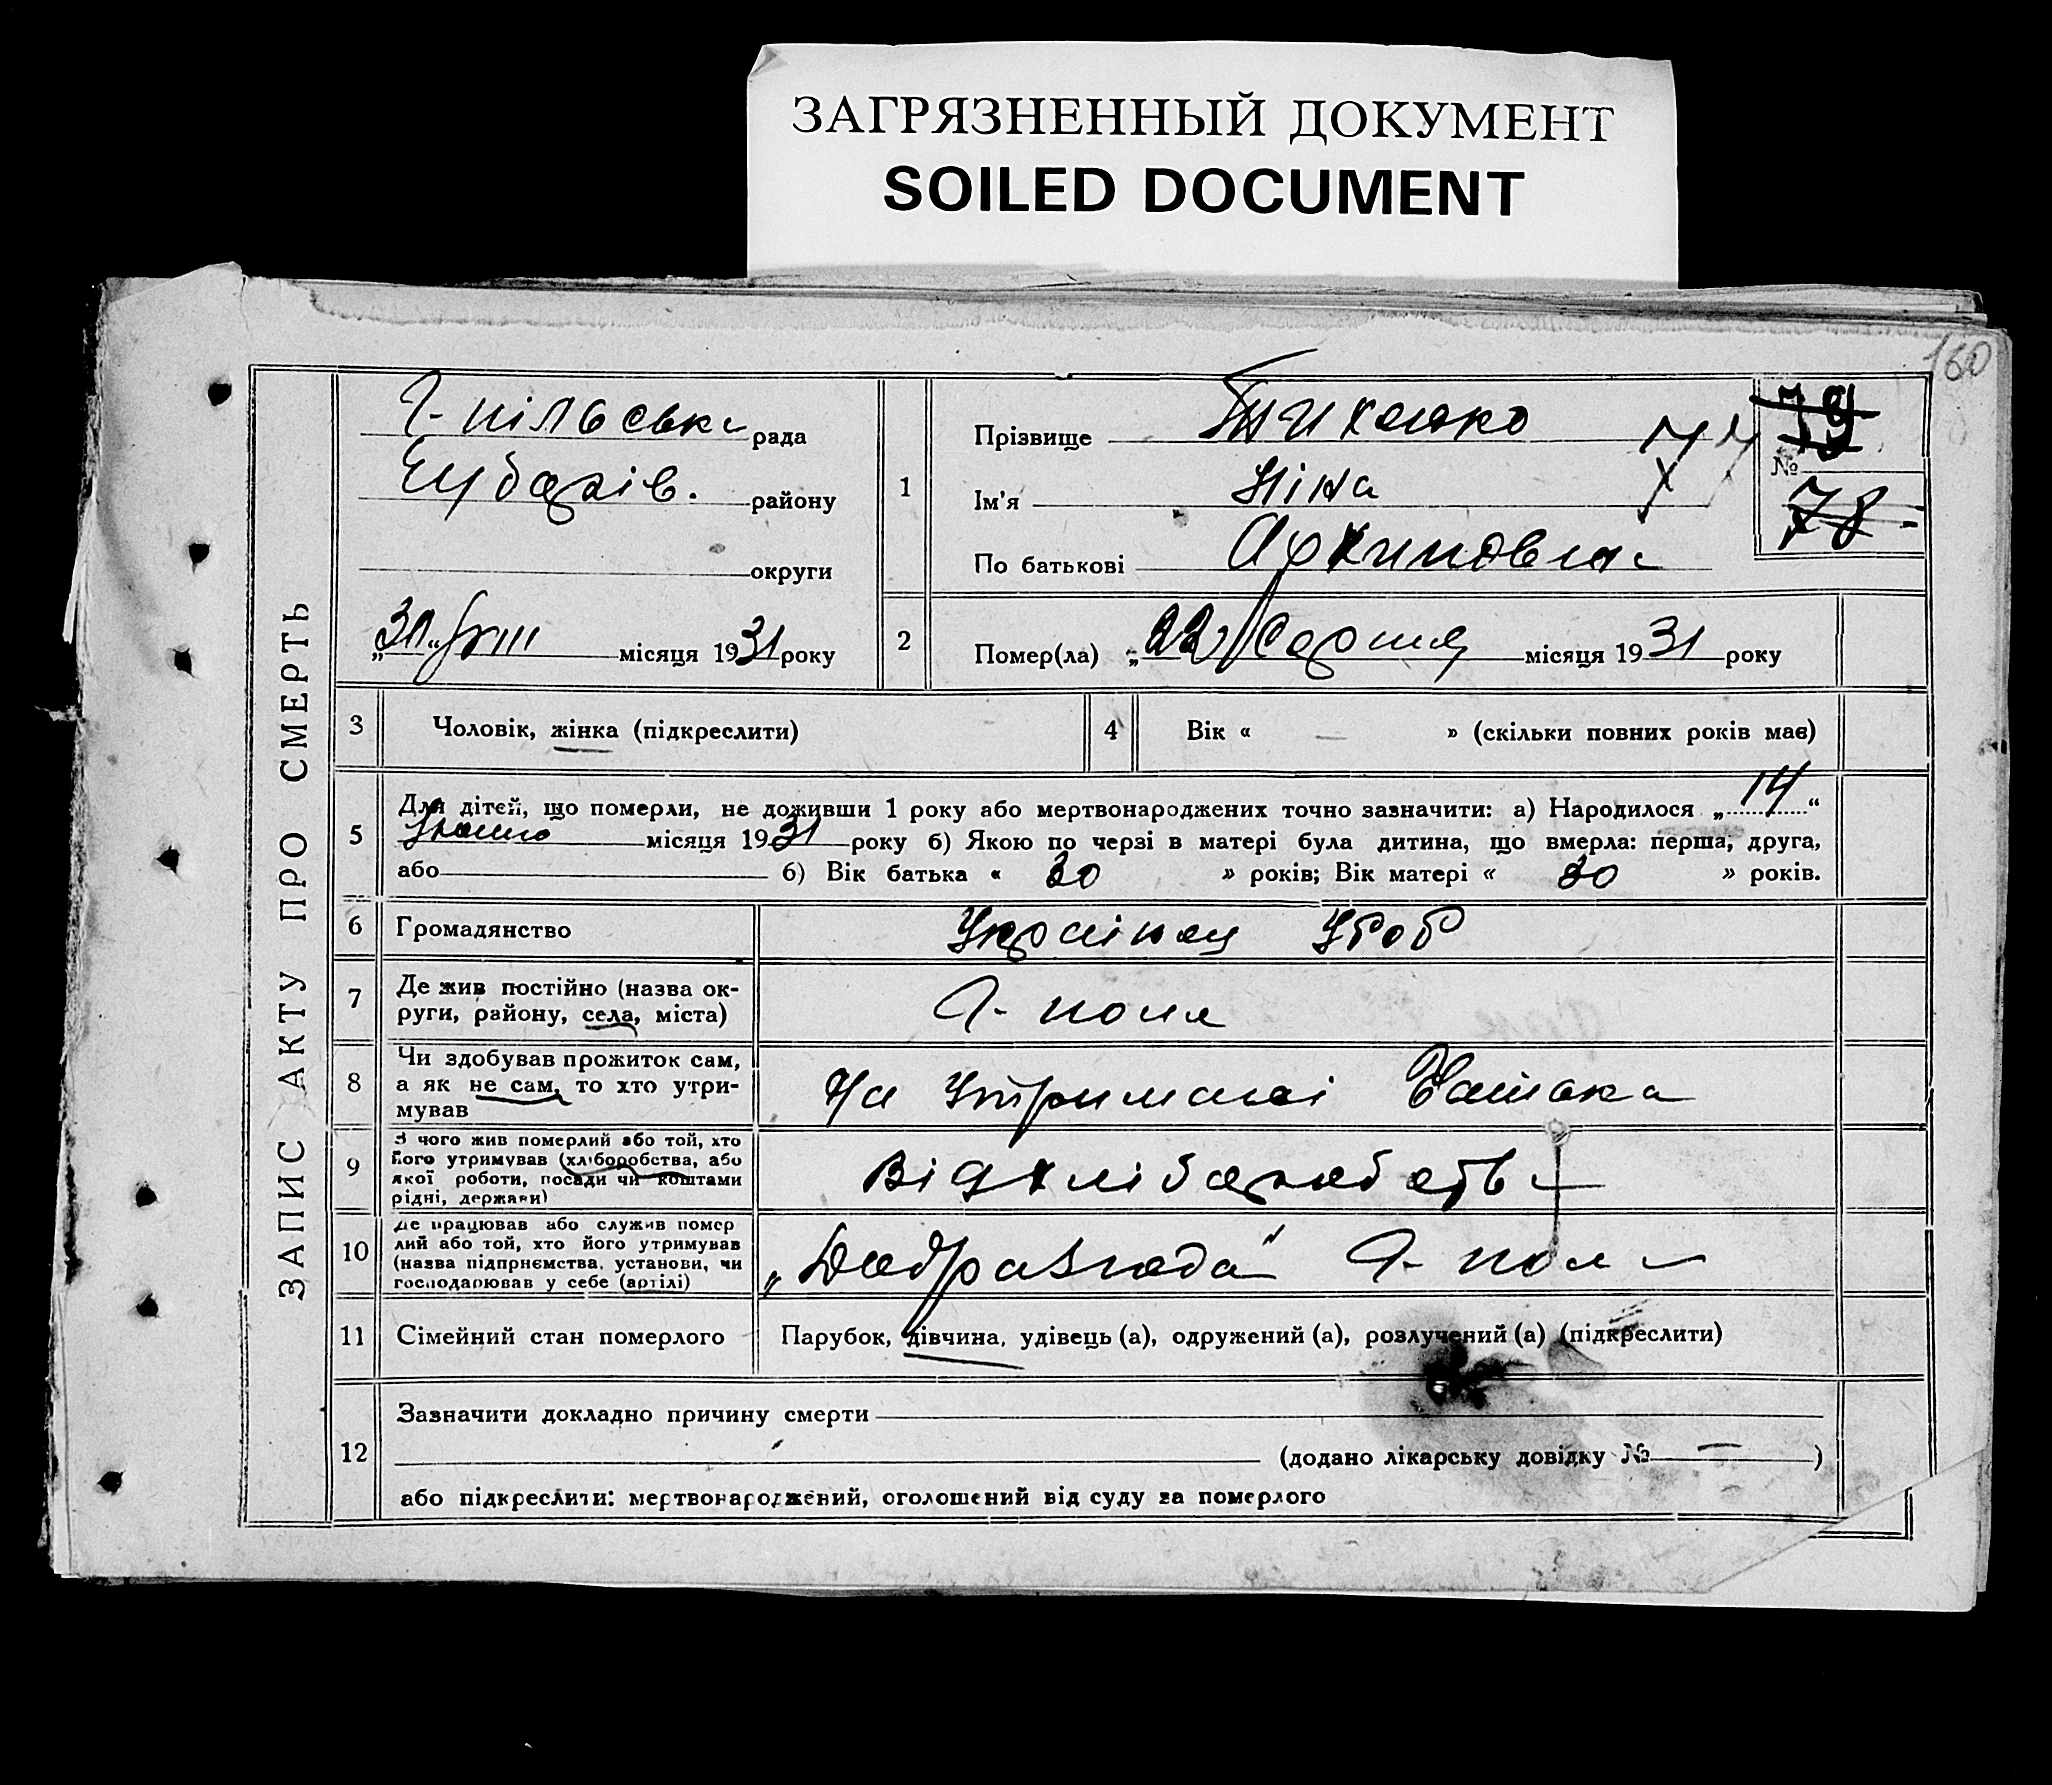 ЗАГРЯЗНЕННЫЙ ДОКУМЕНТ
SOILED DOCUMENT
160
ЗАПИС АКТУ ПРО СМЕРТЬ
рада
району
округи
місяця 1931 року
1
Прізвище Тихенко
Ім'я Ніна
По батькові
77
79
№
78
2
Помер(ла) „22" Серпня місяця 1931 року
3 Чоловік, жінка (підкреслити)
4 Вік « — » (скільки повних років має)
5 Для дітей, що померли, не доживши 1 року або мертвонароджених точно зазначити: а) Народилося „14"
місяця 1931 року б) Якою по черзі в матері була дитина, що вмерла: перша, друга,
або б) Вік батька « 30 » років; Вік матері « 30 » років.
6 Громадянство Українец
7 Де жив постійно (назва ок-
руги, району, села, міста) Г- поле
8 Чи здобував прожиток сам,
а як не сам, то хто утри-
мував На утриманні батька
9 З чого жив померлий або той, хто
його утримував (хліборобства, або
якої роботи, посади чи коштами
рідні, держави)
Від хліборобства
10 Де працював або служив помер
лий або той, хто його утримував
(назва підприємства, установи, чи
господарював у себе (артілі)
Г- поле
11 Сімейний стан померлого Парубок, дівчина, удівець (а), одружений (а), розлучений (а) (підкреслити)
12 Зазначити докладно причину смерти
(додано лікарську довідку № — )
або підкреслити: мертвонароджений, оголошений від суду за померлого